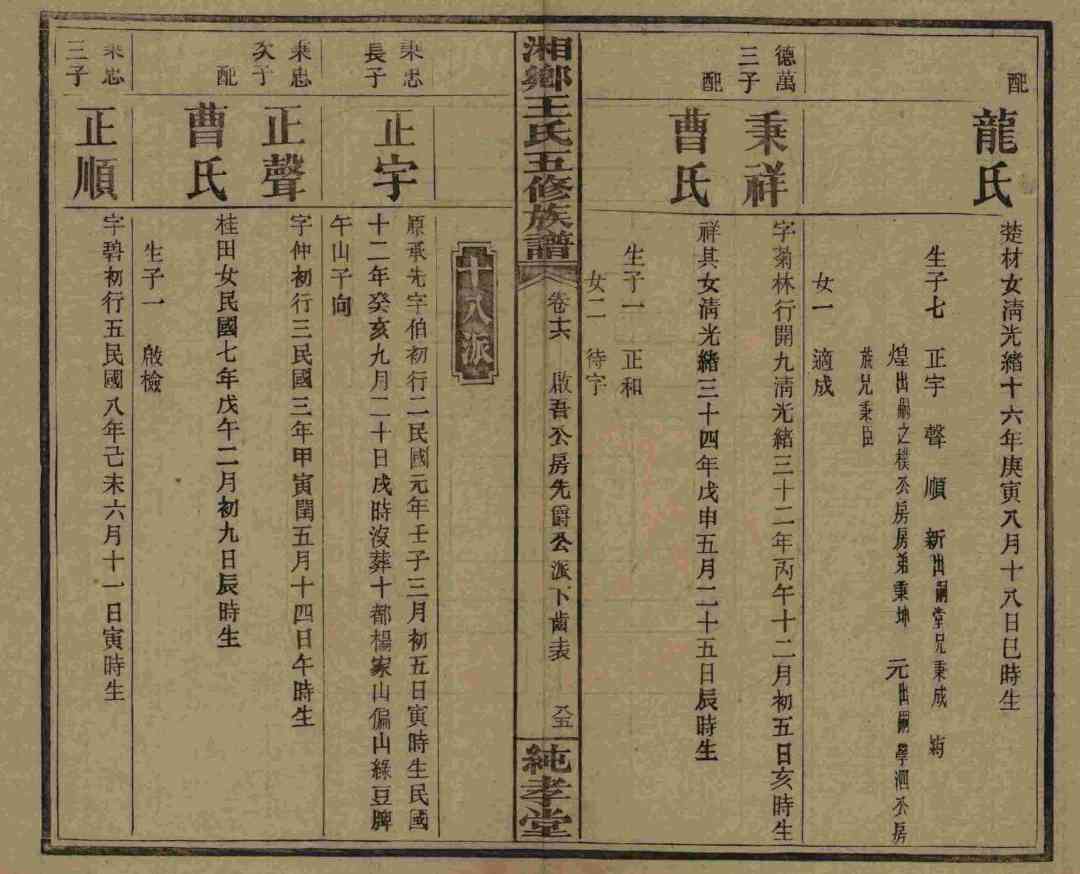 配
龍氏
楚材女淸光緒十六年庚寅八月十八日巳時生
生子七　正宇　聲　順　新出嗣堂兄秉成
煌出嗣之樸公房房弟秉坤　元出嗣學泗公房
族兄秉臣
女一　適成
德萬
三子
秉祥
字菊林行開九淸光緒三十二年丙午十二月初五日亥時生
配
曹氏
祥其女淸光緒三十四年戊申五月二十五日辰時生
生子一　正和
女二　待字
湘鄉王氏五修族譜
卷十六　啟吾公房先爵公派下齒表
八五
純孝堂
十八派
秉忠
長子
正宇
原承先字伯初行二民國元年壬子三月初五日寅時生民國
十二年癸亥九月二十日戌時沒葬十都楊家山偏山綠豆脾
午山子向
秉忠
次子
正聲
字仲初行三民國三年甲寅閏五月十四日午時生
配
曹氏
桂田女民國七年戊午二月初九日辰時生
生子一　啟檢
秉忠
三子
正順
字碧初行五民國八年己未六月十一日寅時生